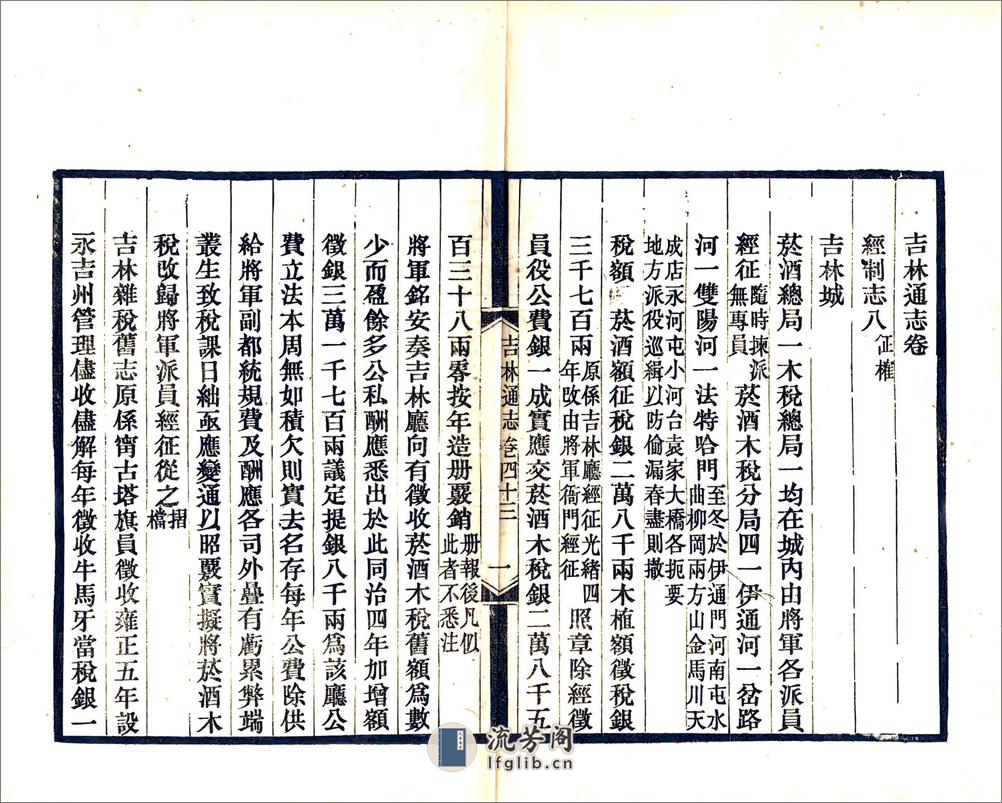 吉林通志卷
經制志八 征榷
吉林城
菸酒總局一木稅總局一均在城內由將軍各派員
經征隨時揀派無專員菸酒木稅分局四一伊通河一岔路
河一雙陽河一法特哈門至冬於伊通門河南屯水曲柳岡兩方山金馬川天
成店永河屯小河台袁家大橋各扼要地方派役巡緝以防偷漏春盡則撤
稅額 菸酒額征稅銀二萬八千兩木植額徵稅銀
三千七百兩原係吉林廳經征光緒四年改由將軍衙門經征照章除經徵
員役公費銀一成實應交菸酒木稅銀二萬八千五
吉林通志 卷四十三 一
百三十八兩零按年造册覈銷册報後凡似此者不悉注
將軍銘安奏吉林廳向有徵收菸酒木稅舊額爲數
少而盈餘多公私酬應悉出於此同治四年加增額
徵銀三萬一千七百兩議定提銀八千兩爲該廳公
費立法本周無如積欠則實去名存每年公費除供
給將軍副都統規費及酬應各司外疊有虧累弊端
叢生致稅課日絀亟應變通以昭覈實擬將菸酒木
稅改歸將軍派員經征從之摺檔
吉林雜稅舊志原係甯古塔旗員徵收雍正五年設
永吉州管理儘收儘解每年徵收牛馬牙當稅銀一
流芳阁
lfglib.cn